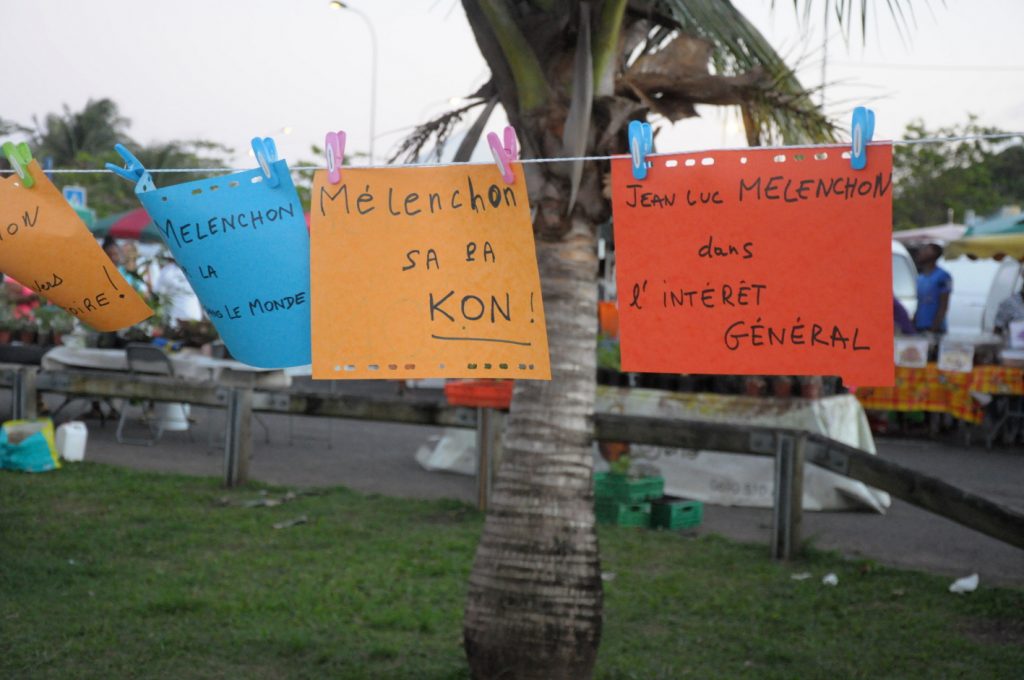 vers
MELENCHON
LA
LE MONDE
Mélenchon
SA ЄA
KON !
JEAN LUC MELENCHON
dans
l'INTÉRÊT
GÉNÉRAL